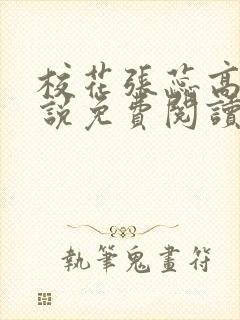 校花張蕊高
說免費閱讀
執筆鬼畫符